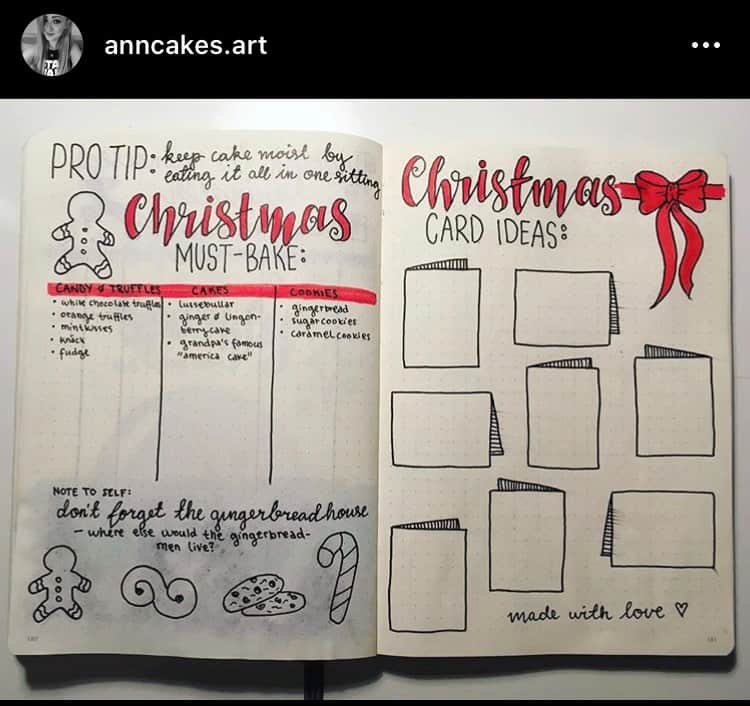 anncakes.art
PRO TIP: keep cake moist by
eating it all in one sitting
Christmas
MUST-BAKE:
CANDY & TRUFFLES
• white chocolate truffles
• orange truffles
• mintkisses
• knäck
• fudge
CAKES
• lussebullar
• ginger & lingon-
berrycake
• grandpa's famous
"america cake"
COOKIES
• gingerbread
• sugarcookies
• caramelcookies
NOTE TO SELF:
don't forget the gingerbreadhouse
- where else would the gingerbread-
men live?
180
Christmas
CARD IDEAS:
made with love ♡
181